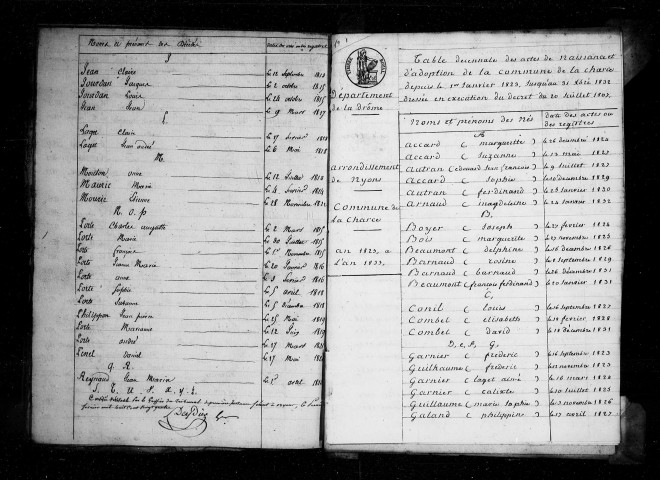 Noms et prénoms des Décédés
J
Jean Claire Le 12 Septembre 1810
Jourdan Jacques Le 2 octobre 1817
Jourdan Louise Le 28 octobre 1815
Jean Jean Le 9 Mars 1817
L
Laget Claire Le 27 février 1818
Laget Jean André Le 6 Mai 1818
M.
Moullon anne Le 12 Juillet 1810
Mauric Marie Le 4 février 1814
Mouric Etienne Le 28 Novembre 1822
N. O. P
Lorte Charles auguste Le 2 Mars 1815
Lorte Marie Le 30 Juillet 1815
Lorte françoise Le 1er Novembre 1815
Lorte Jeanne Marie Le 20 Janvier 1816
Lorte anne Le 3 février 1816
Lorte Sophie Le 5 avril 1818
Lorte Suzanne Le 5 Décembre 1818
Philippon Jean pierre Le 25 Mai 1819
Lorte Marianne Le 12 Juin 1819
Lorte andré Le 27 Mars
Lenel David Le 27 Mai
Q R.
Reynaud Jean Marin Le 1er avril
S. T. U. V. X. Y. Z.
N° 1
Département
de la drôme
arrondissement
de Nyons
Commune de
La Charce
an 1823, a
L'an 1833,
Table décennale des actes de naissance et
d'adoption de la commune de la charce
depuis le 1er Janvier 1823, Jusqu'au 31 Xbre 1832
dressée en execution du decret du 20 Juillet 1807.
Noms et prénoms des Nés date des actes ou des registres
A
Accard ( marguerite ) le 26 decembre 1824
Accard ( suzanne ) le 12 mai 1825
Autran ( edouard jean françois ) le 9 Juillet 1827
Accard ( sophie ) le 10 decembre 1829
Autran ( ferdinand ) le 28 Janvier 1830
Arnaud ( magdeleine ) le 24 Janvier 1832
B.
Boyer ( Joseph ) le 27 fevrier 1824
Bois ( marguerite ) le 27 novembre 1825
Beaumont ( delphine ) le 16 decembre 1826
Barnaud ( rosine ) le 20 septembre 1829
Barnaud ( barnaud ) le 26 decembre 1831
Beaumont ( françois ferdinand ) le 20 Janvier 1831
C,
Conil ( louis ) le 16 septembre 1827
Combet ( elisabeth ) le 10 fevrier 1828
Combet ( david ) le 18 decembre 1831
D, e, f, G,
Garnier ( frederic ) le 16 septembre 1823
Guilhaume ( frederic ) le 23 novembre 1823
Garnier ( laget aimé ) le 16 mars 1824
Garnier ( calixte ) le 30 Juillet 1825
Guillaume ( marie sophie ) le 3 novembre 1826
Galand ( philippine ) le 17 avril 1827